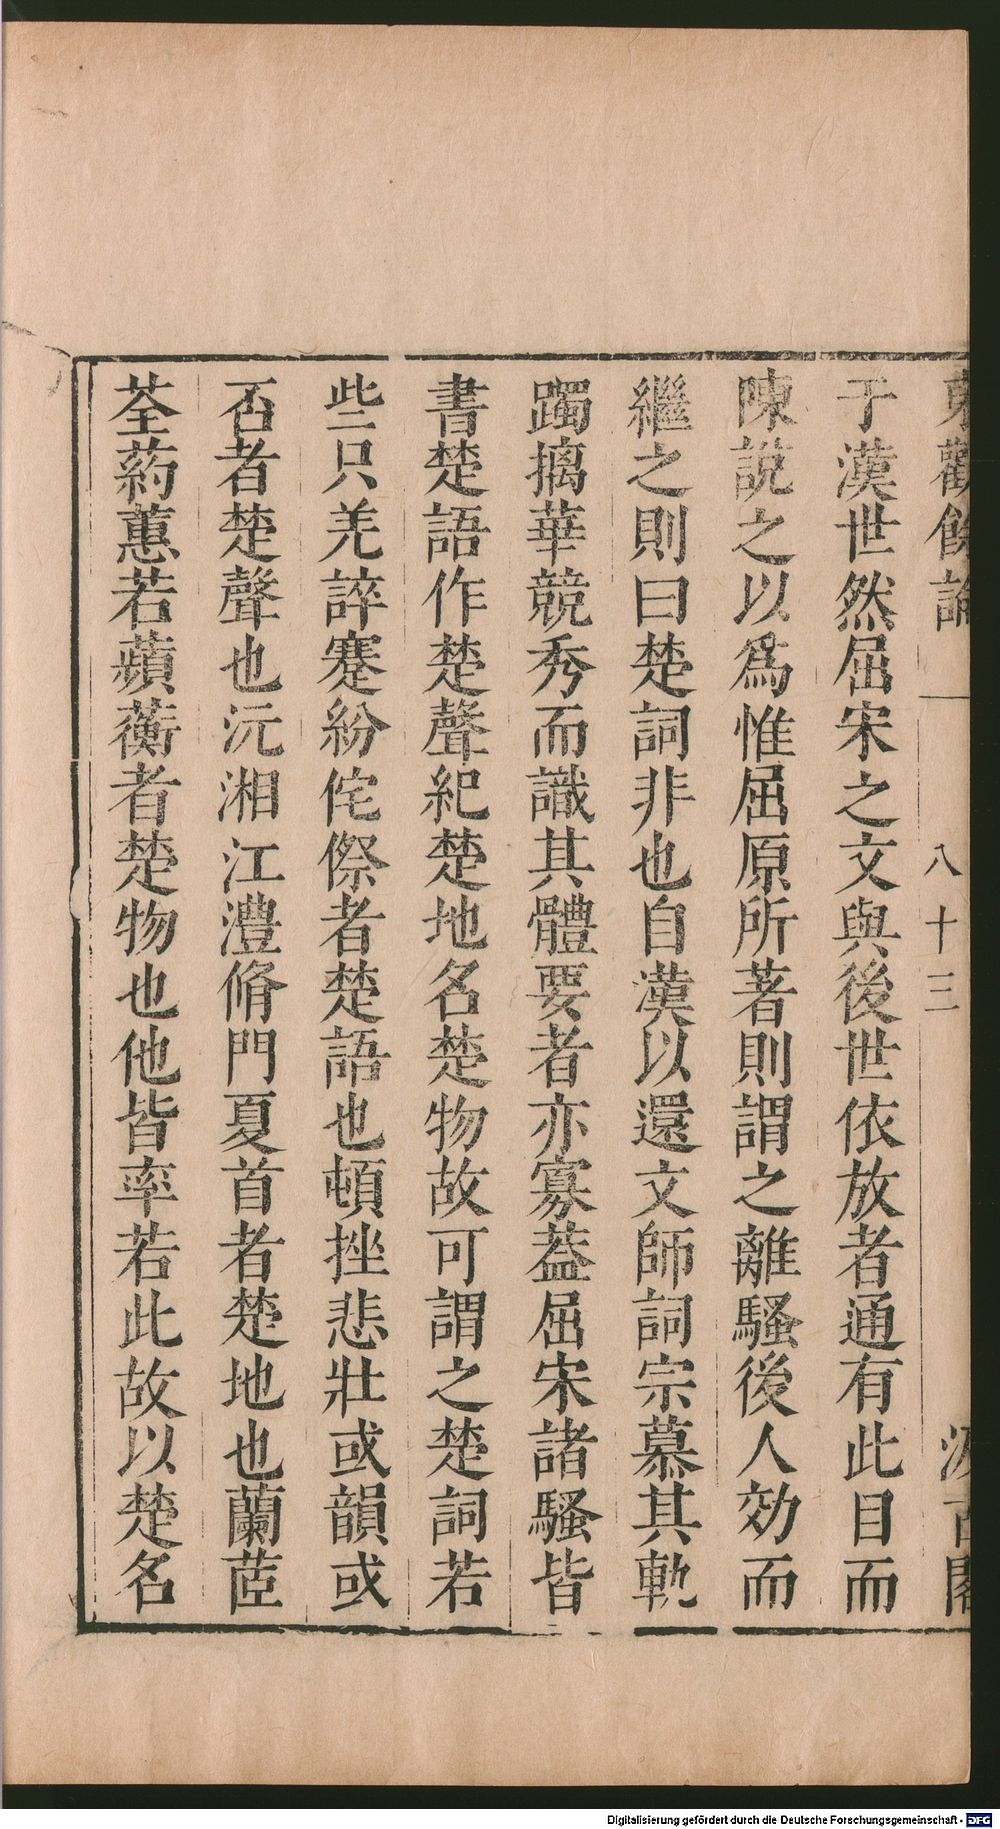 東觀餘論
八十三
汲古閣
于漢世然屈宋之文與後世依放者通有此目而
陳說之以爲惟屈原所著則謂之離騷後人効而
繼之則曰楚詞非也自漢以還文師詞宗慕其軌
躅摛華競秀而識其體要者亦寡葢屈宋諸騷皆
書楚語作楚聲紀楚地名楚物故可謂之楚詞若
些只羌誶蹇紛侘傺者楚語也頓挫悲壯或韻或
否者楚聲也沅湘江澧脩門夏首者楚地也蘭茝
荃葯蕙若蘋蘅者楚物也他皆率若此故以楚名
Digitalisierung gefördert durch die Deutsche Forschungsgemeinschaft - DFG